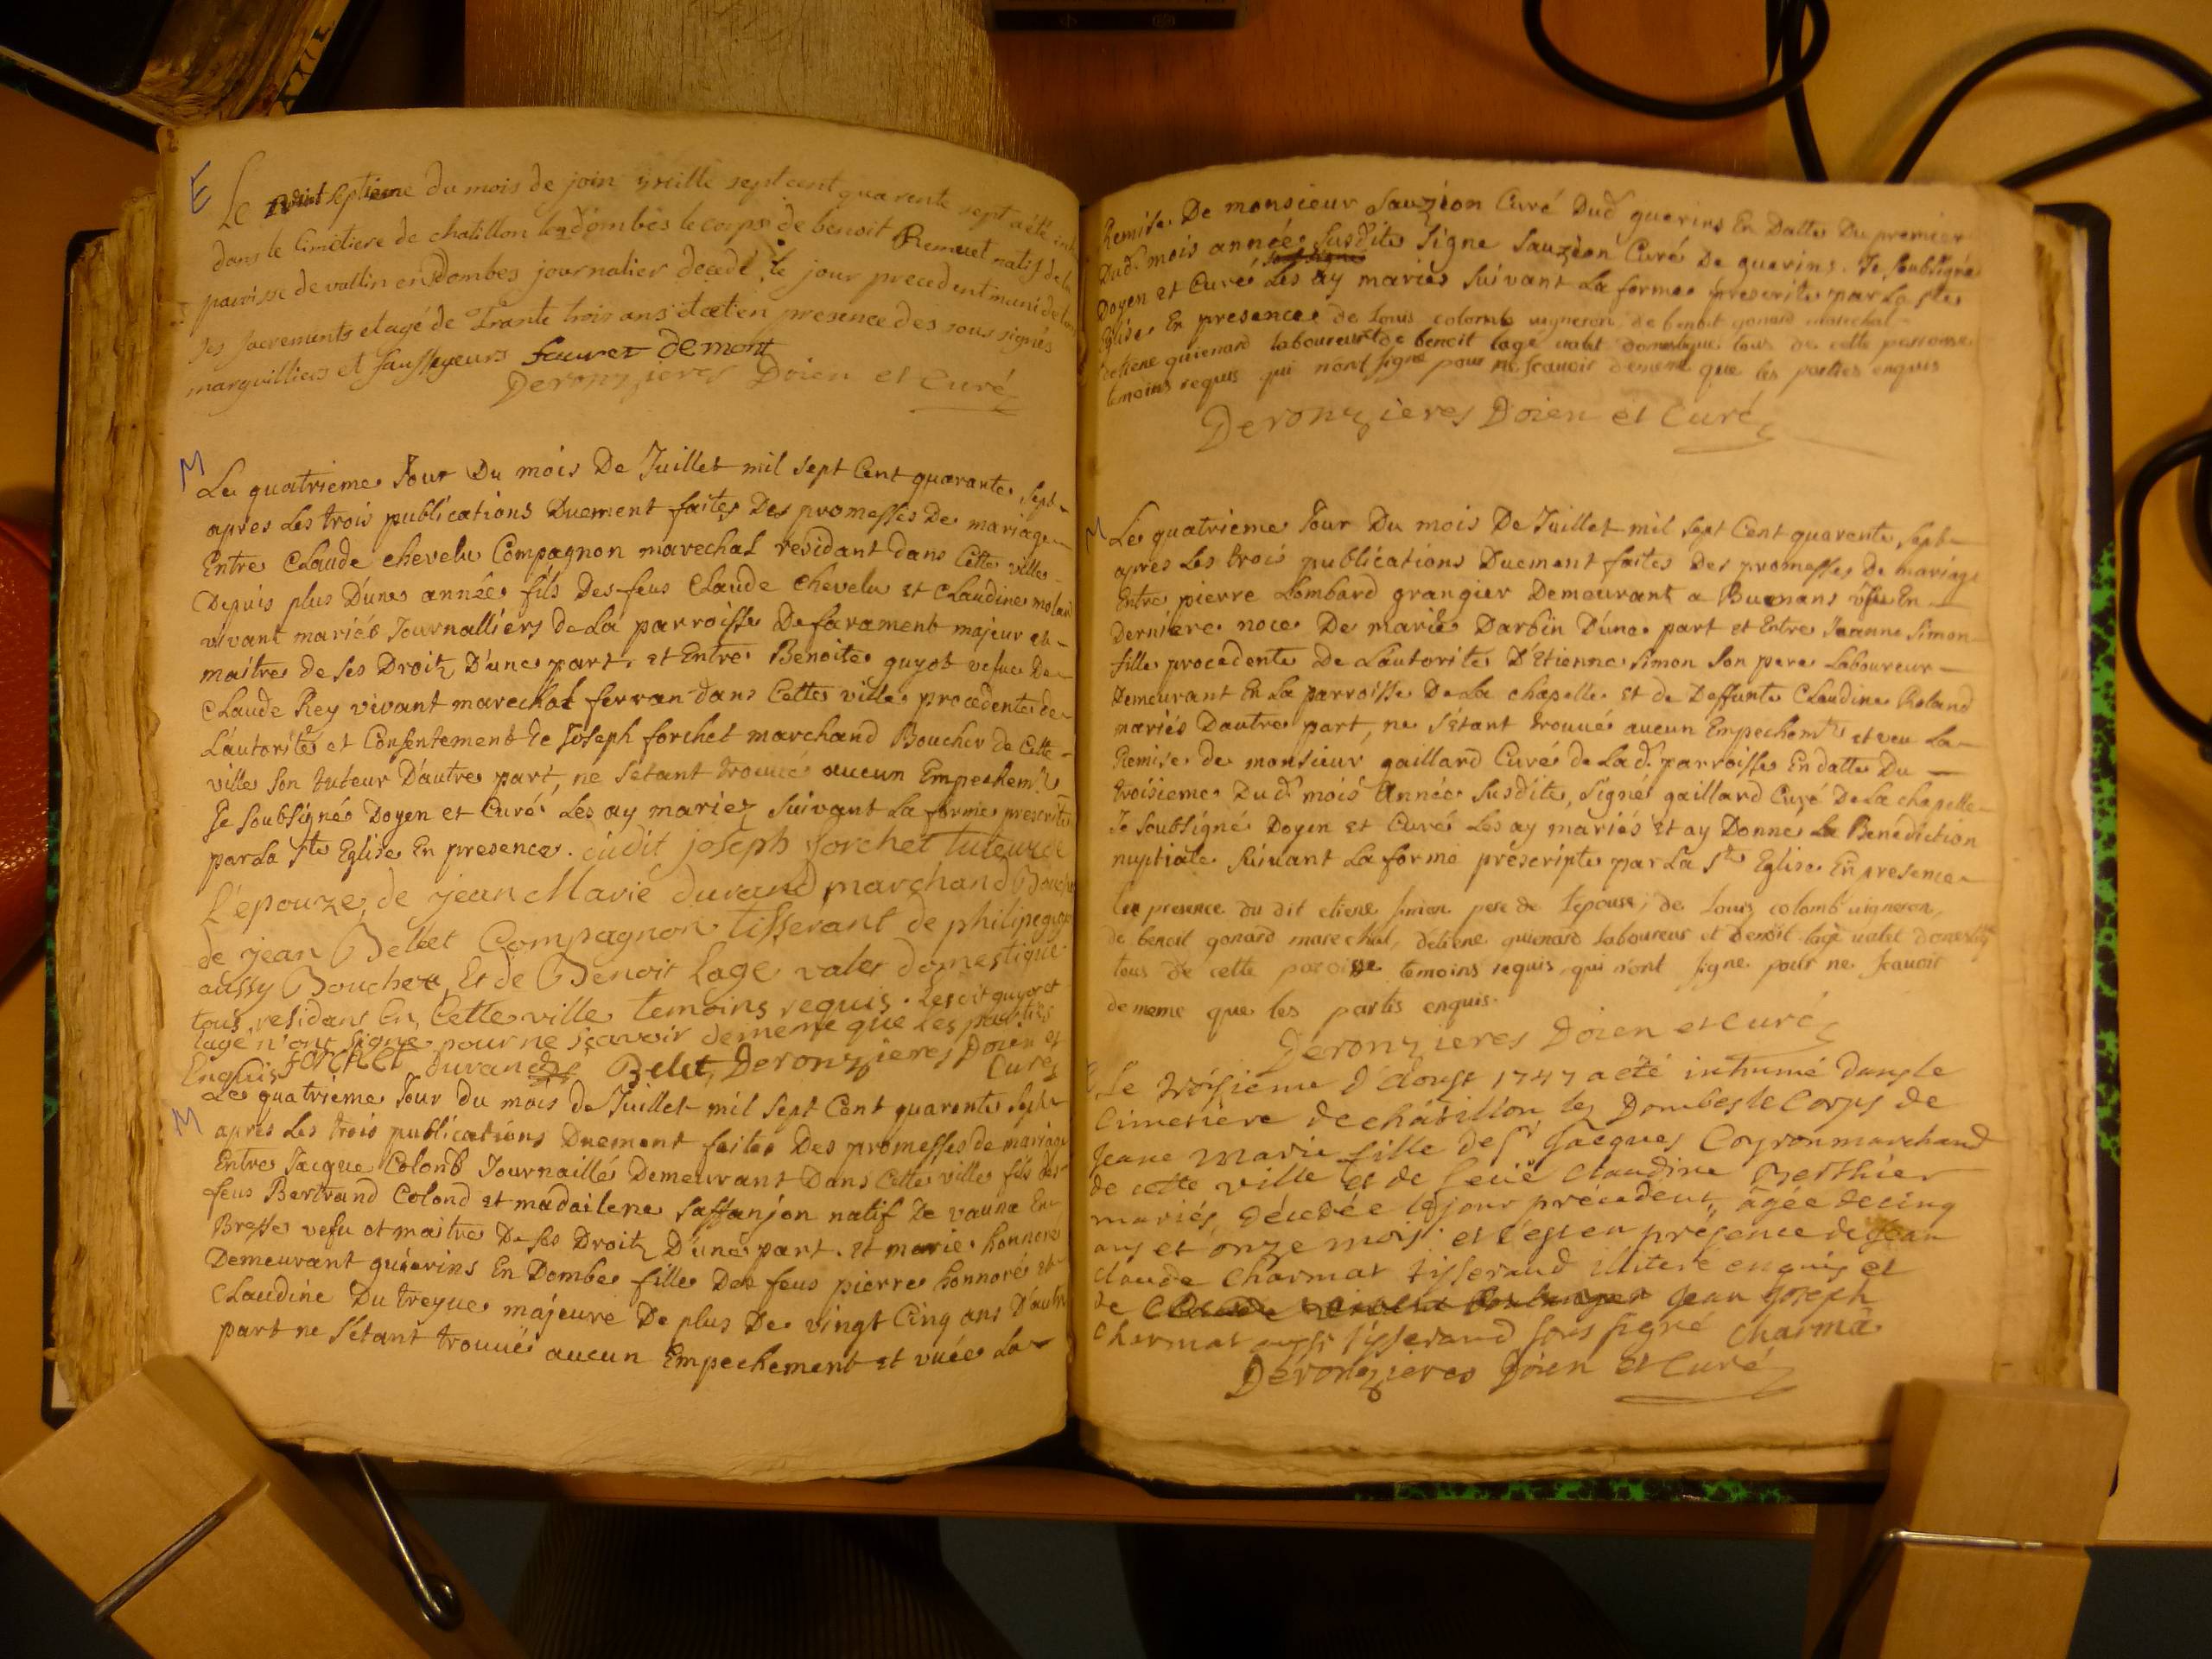 E
Le vint septieme du mois de join mille sept cent quarente sept a été
dans le cimetiere de chatillon les dombes le corps de benoit Remuet natif de la
paroisse de vallin en Dombes journalier decedé le jour precedent muni de tous
ses sacrements et agé de Trante trois ans et cet en presence des sous signés
marguilliers et faussoyeurs fauret demont
Deronzieres Doien et Curé
M
Le quatrieme Jour Du mois De Juillet mil sept Cent quarante sept
apres Les trois publications Duement faites Des promesses De mariage
Entre Claude chevelu Compagnon marechal residant dans Cette ville
Depuis plus D'une année fils Des feus Claude Chevelu et Claudine molard
vivant mariés Journalliers de La parroisse De faramens majeur et
maitre de ses Droitz D'une part, et Entre Benoite guyot vefue De
Claude Rey vivant marechal ferran dans Cette ville procedente de
L'autorité et Consentement de Joseph forchet marchand Boucher de Cette
ville son tuteur D'autre part, ne s'etant trouué aucun Empechemt
Je soubsigné Doyen et Curé Les ay mariez suivant La forme prescrite
par La ste Eglise En presence. dudit joseph forchet tuteur de
L'epouze, de jean Marie durand marchand Boucher
de jean Bellet Compagnon tisserant de philipe guyot
aussy Boucher, Et de Benoit Lage valet domestique
tous residans En Cette ville temoins requis. Lesdit guyot et
lage n'ont signe pour ne sçavoir de meme que Les parties
Enquis forchet durand Belet, Deronzieres Doien et
Curé
M
Le quatrieme Jour du mois de Juillet mil sept Cent quarente sept
apres Les trois publications Duement faites Des promesses de mariage
Entre Jacque Colomb Journaillé Demeurant Dans Cette ville fils des
feus Bertrand Colond et madailene saffanjon natif de vauna En
Bresse vefu et maitre De ses Droitz D'une part. et marie honnore
Demeurant guérins En Dombe fille Des feus pierre honnoré et
Claudine Dutreyue majeure De plus De vingt Cinq ans D'autre
part ne s'etant trouué aucun Empechement et vuée La
Remise De monsieur Sauzion Curé Dud guerins En Datte Du premier
Dud. mois année Susdite Signe Sauzéon Curé De guerins. Je soubsigné
Doyen et Curé Les ay mariés suivant La forme prescrite par La ste
Eglise En presence de Louis colomb vigneron de benoit gonard marechal
detiene guienard laboureur et de benoit lagé valet domestique tous de cette paroisse
temoins requis qui n'ont signé pour ne scavoir de meme que les parties enquis
Deronzieres Doien et Curé
M
Le quatrieme Jour Du mois De Juillet mil sept Cent quarente sept
apres Les trois publications Duement faites Des promesses de mariage
Entre pierre Lombard grangier Demeurant a Buenans En
Derniere noce De marie Darbin D'une part et Entre Jeanne Simon
fille procedente De L'autorité D'Etienne Simon Son pere Laboureur
Demeurant En La parroisse De La chapelle et de Deffunte Claudine Roland
mariés Dautre part, ne s'étant trouué aucun Empechemt et veu La
Remise de monsieur gaillard Curé de Lad. parroisse En datte Du
troisieme Dud. mois année Susdite, signé gaillard Curé De La chapelle
Je Soubsigné Doyen et Curé Les ay mariés et ay Donné La Benédiction
nuptiale suivant La forme préscripte par La ste Eglise En presence
En presence du dit etiene simon pere de lepouse, de Louis colomb vigneron,
de benoit gonard marechal, detiene guienard laboureur et benoit lage valet domestiq
tous de cette paroisse temoins requis qui n'ont signe pour ne scavoir
de meme que les partis enquis.
Deronzieres Doien et Curé
Le troisieme d'Aoust 1747 a été inhumé dans le
Cimetiere de châtillon lez Dombes le Corps de
Jeane Marie fille de sr Jacques Coyron marchand
de cette ville et de feuë Claudine Berthier
mariés, décédée le jour précedent, âgée de cinq
ans et onze mois et c'est en présence de Jean
Claude Charmat tisserand illiteré enquis et
de Jean Joseph
Charmat aussi tisserand sous signé Charma
Deronzieres Doien et Curé